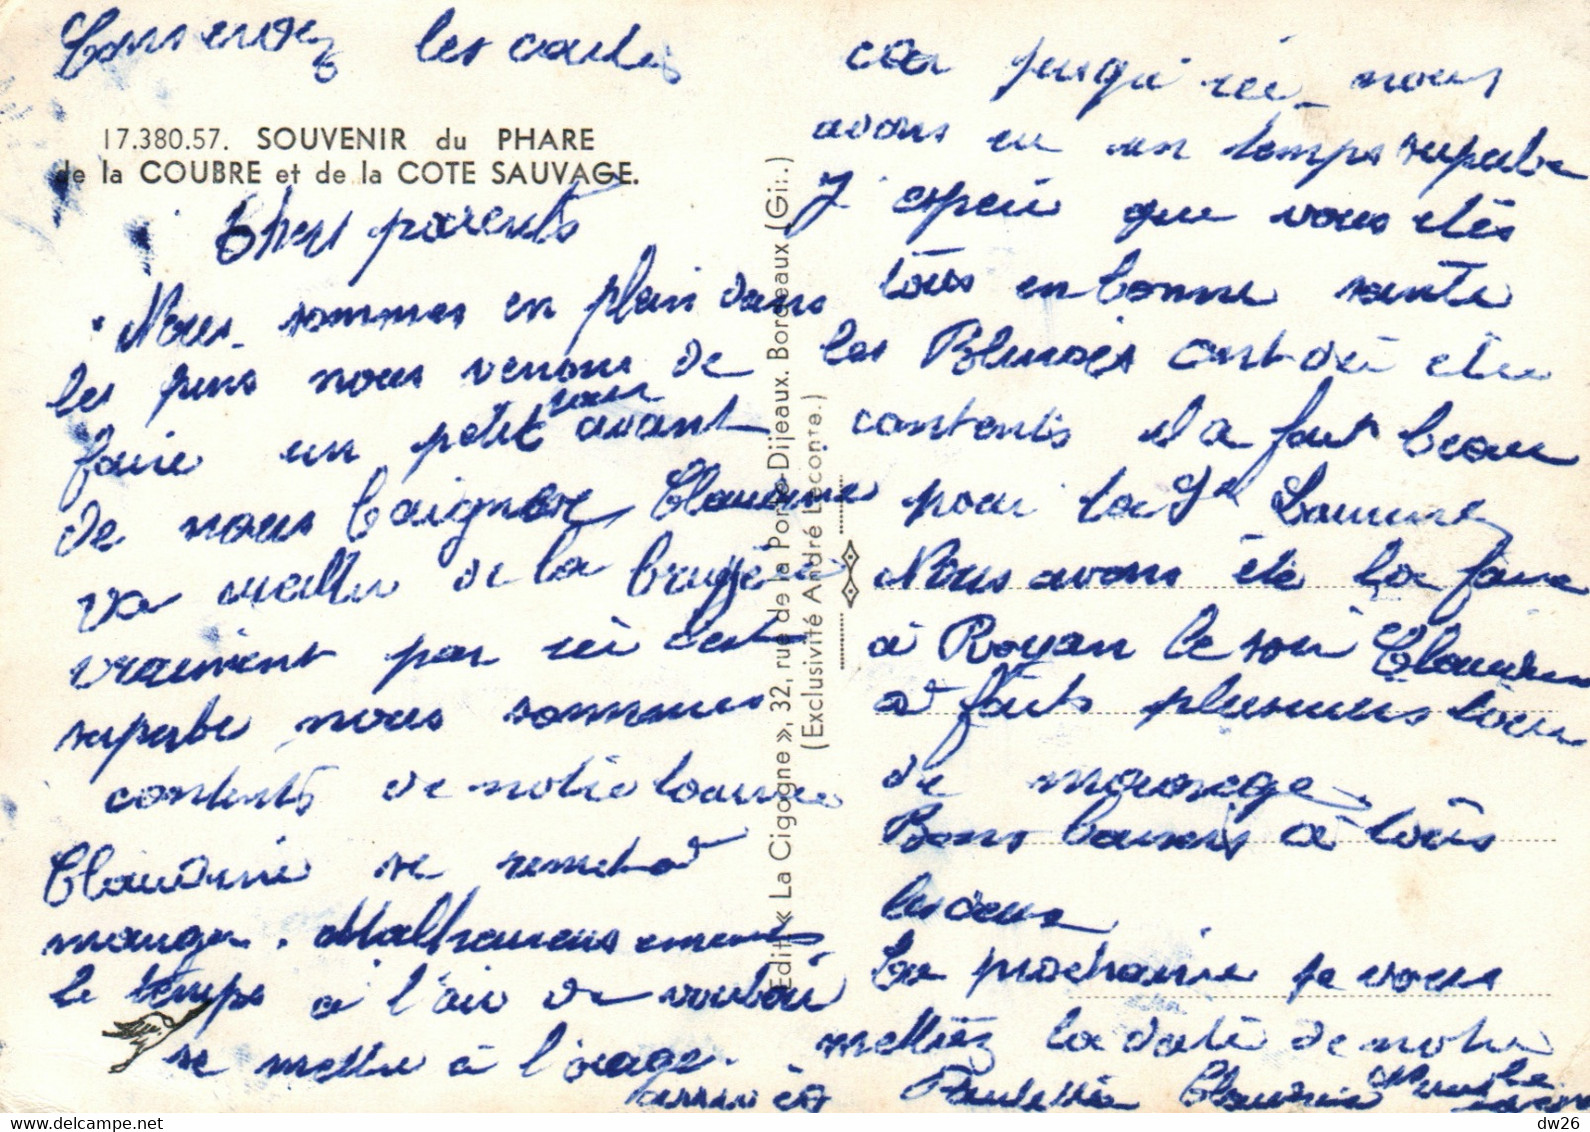 Conservez les cartes
17.380.57. SOUVENIR du PHARE
de la COUBRE et de la COTE SAUVAGE.
Chers parents
Nous sommes en plein dans
les pins nous venons de
faire un petit tour avant
de nous baigner Claudine
va mettre de la bruyère
vraiment par ici c'est
superbe nous sommes
contents de notre tournée
Claudine se remet à
manger. Malheureusement
le temps à l'air de vouloir
se mettre à l'orage.
car jusqu'ici nous
avons eu un temps superbe
J'espère que vous êtes
tous en bonne santé
les ont dû être
contents il a fait beau
pour la St Laurent
Nous avons été la foire
à Royan le soir Claudine
a faits plusieurs tours
de manege.
Bons baisers à tous
les deux
La prochaine je vous
mettrez la date de notre
arrivée Paulette Claudine
Edit. « La Cigogne », 32, rue de la Porte-Dijeaux. Bordeaux (Gir.)
(Exclusivité André Leconte.)
dw26